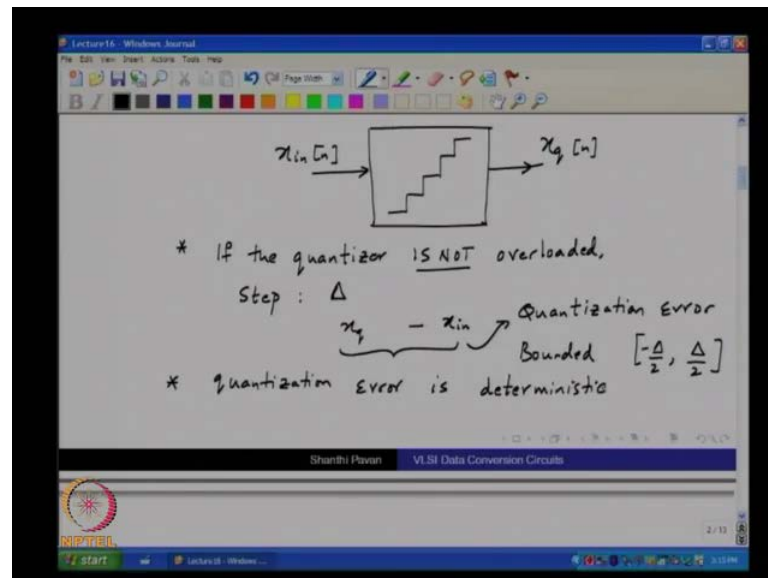 Lecture16 - Windows Journal
File Edit View Insert Actions Tools Help
Page Width
B I
x_in [n]
x_q [n]
* If the quantizer IS NOT overloaded,
Step : Δ
x_q - x_in
Quantization Error
Bounded [-Δ/2, Δ/2]
* quantization Error is deterministic
Shanthi Pavan VLSI Data Conversion Circuits
2/13
NPTEL
start
Lecture16 - Windows ...
3:15 PM